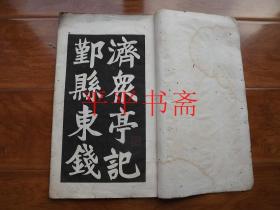 鄞縣東錢
濟眾亭記
平平书斋